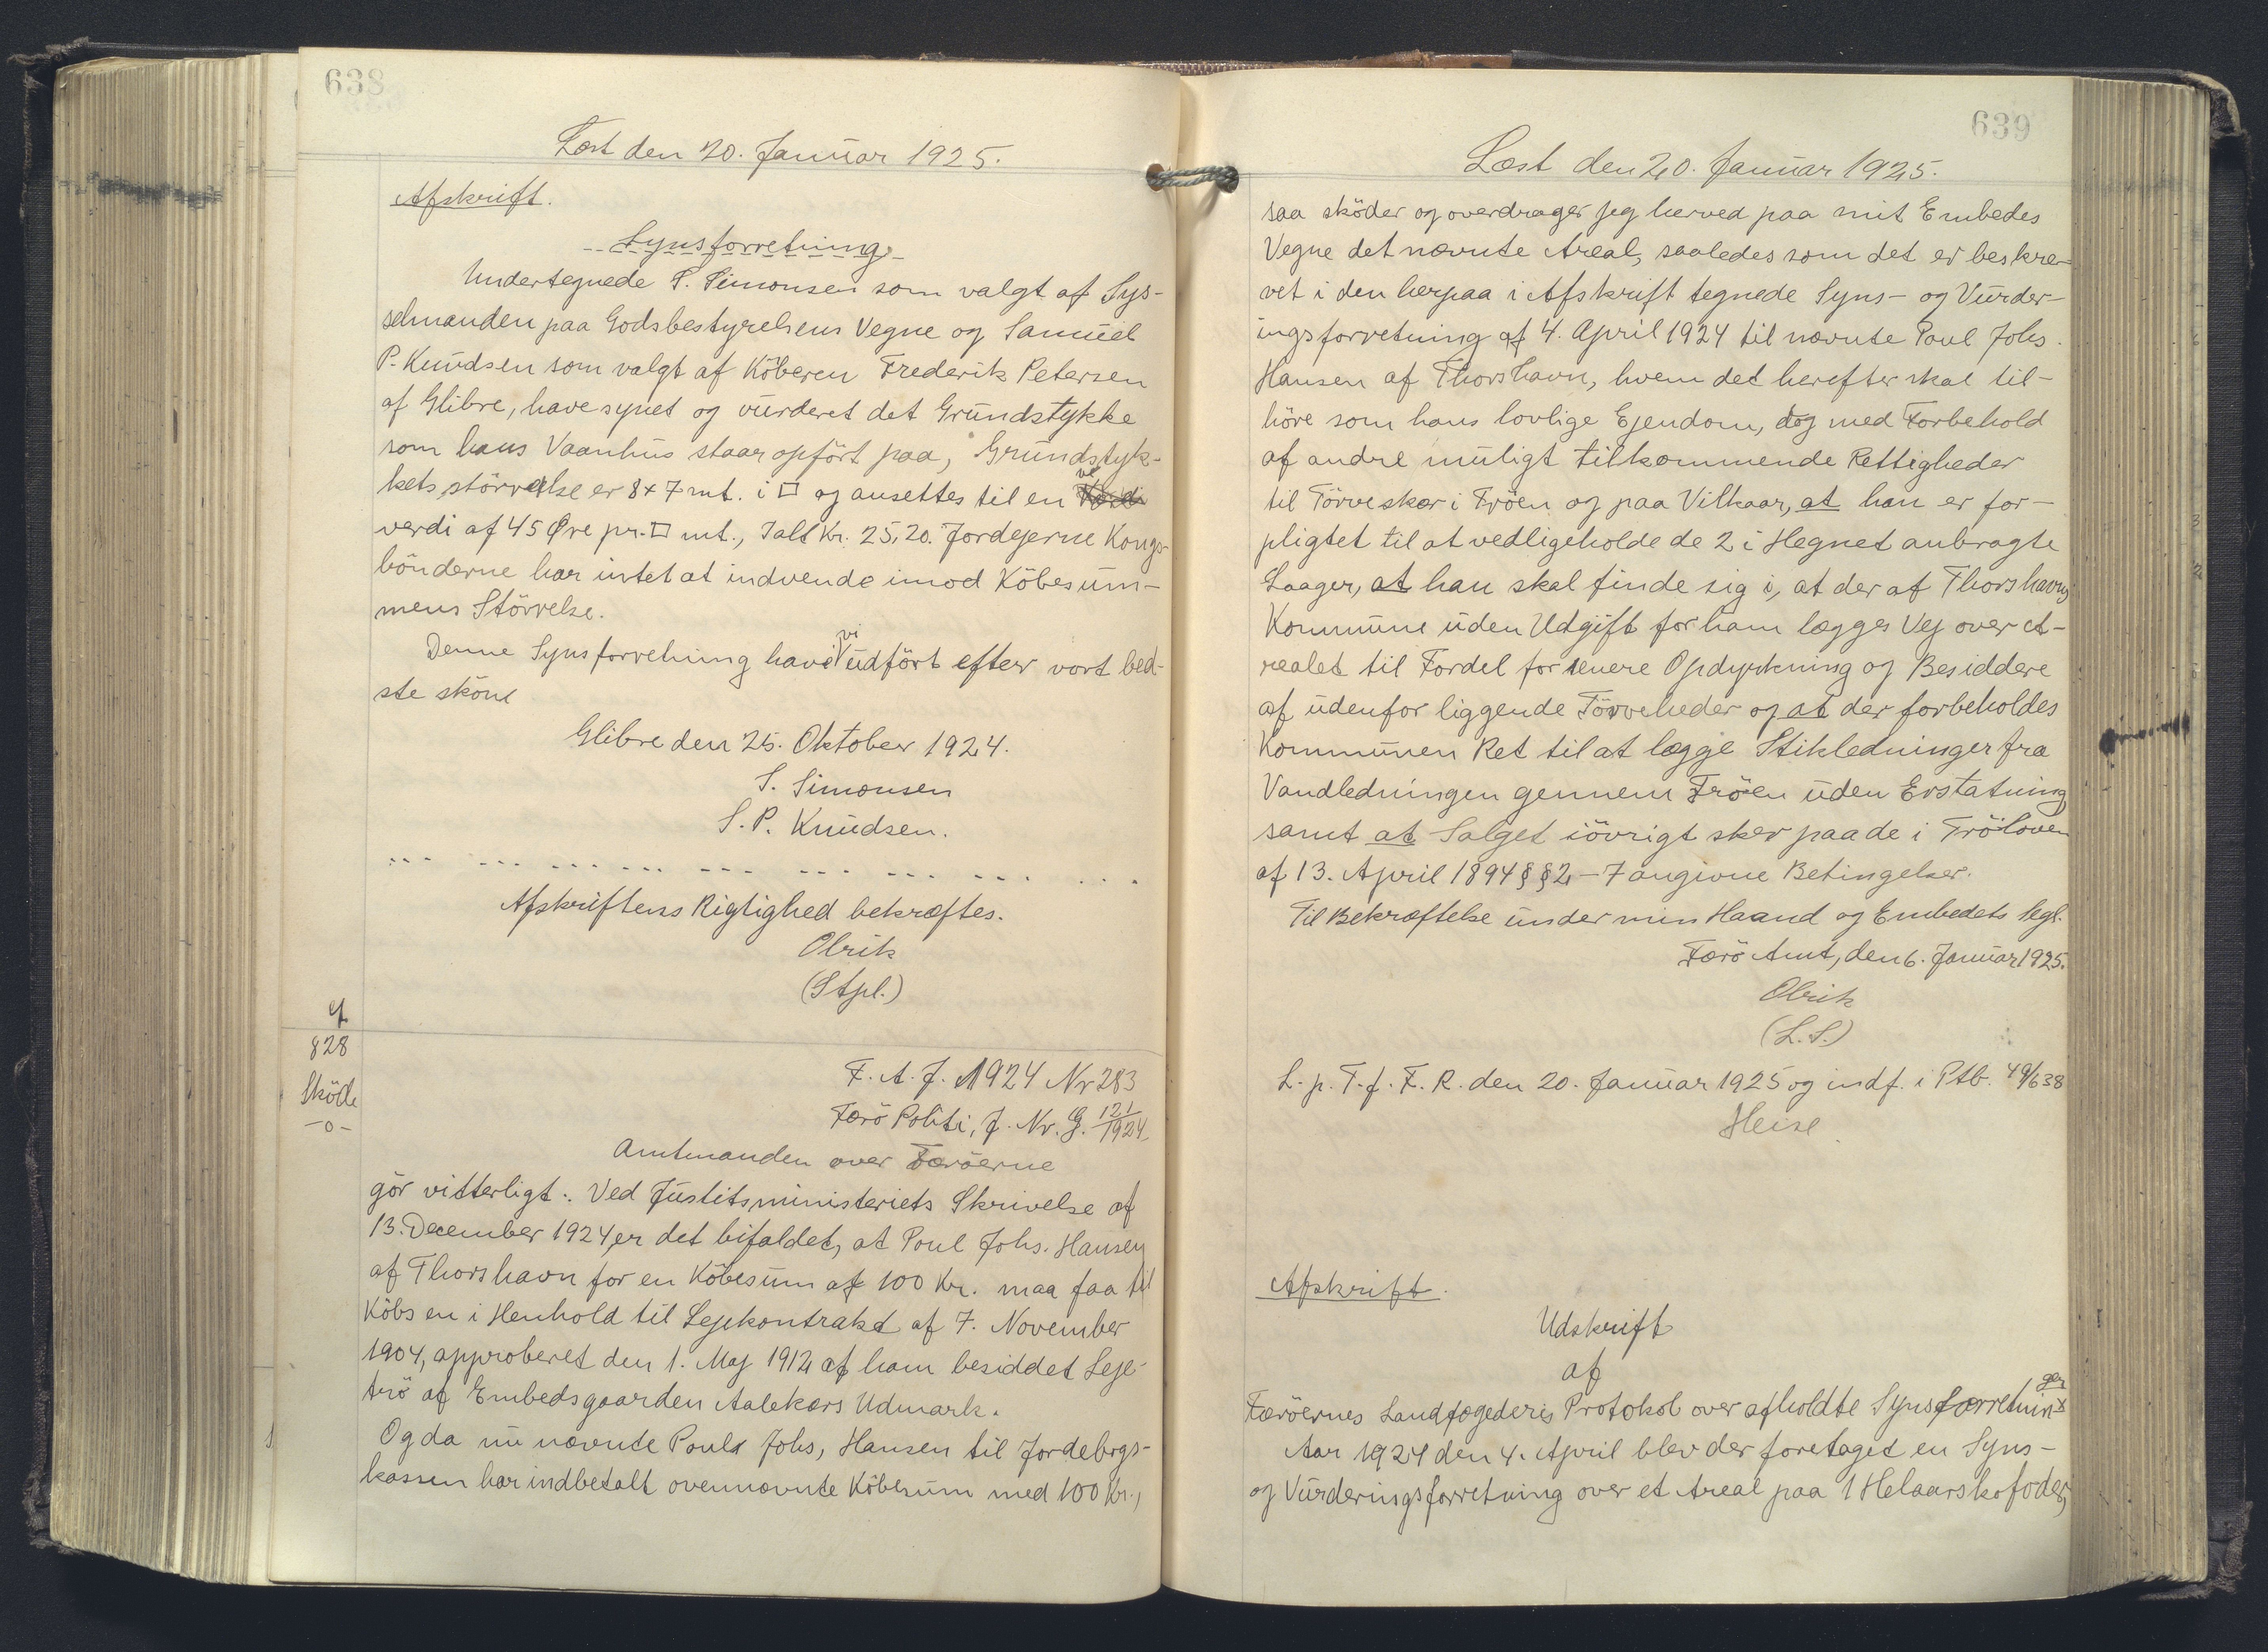 638
Læst den 20. Januar 1925.
Afskrift.
Synsforretning
Undertegnede S. Simonsen som valgt af Sys-
selmanden paa Godsbestyrelsens Vegne og Samuel
P. Knudsen som valgt af Köberen Frederik Petersen
af Glibre, have synet og vurderet det Grundstykke
som hans Vaanhus staar opfört paa, Grundstyk-
kets störrelse er 8 x 7 mt. i □ og ansettes til en
verdi af 45 Øre pr. □ mt., Ialt Kr. 25,20. Jordejerne Kongs-
bönderne har intet at indvende imod Köbesum-
mens Störrelse.
Denne Synsforretning have vi udfört efter vort bed-
ste skönd
Glibre den 25. Oktober 1924.
S. Simonsen
S. P. Knudsen.
Afskriftens Rigtighed bekræftes.
Olrik
(Stpl.)
828
Sköde
-o-
F. A. J. 1924 Nr 283
Færö Politi, J. Nr. G. 121/1924
Amtmanden over Færöerne
gör vitterligt: Ved Justitsministeriets Skrivelse af
13. December 1924 er det bifaldet, at Poul Johs. Hansen
af Thorshavn for en Köbesum af 100 Kr. maa faa til
Köbs en i Henhold til Lejekontrakt af 7. November
1904, approberet den 1. Maj 1912 af ham besiddet Leje-
trö af Embedsgaarden Aalekærs Udmark.
Og da nu nævnte Poul Johs, Hansen til Jordebogs-
kassen har indbetalt ovennævnte Köbesum med 100 Kr.,
639
Læst den 20. Januar 1925.
saa sköder og overdrager jeg herved paa mit Embedes
Vegne det nævnte Areal, saaledes som det er beskre-
vet i den herpaa i Afskrift tegnede Syns- og Vurder-
ingsforretning af 4. April 1924 til nævnte Poul Johs.
Hansen af Thorshavn, hvem det herefter skal til-
höre som hans lovlige Ejendom, dog med Forbehold
af andre muligt tilkommende Rettigheder
til Törveskær i Tröen og paa Vilkaar, at han er for-
pligtet til at vedligeholde de 2 i Hegnet anbragte
Laager, at han skal finde sig i, at der af Thorshavns
Kommune uden Udgift for ham lægges Vej over A-
realet til Fordel for senere Opdyrkning og Besiddere
af udenfor liggende Törveheder og at der forbeholdes
Kommunen Ret til at lægge Stikledninger fra
Vandledningen gennem Tröen uden Erstatning
samt at Salget iövrigt sker paa de i Tröloven
af 13. April 1894 §§2-7 angivne Betingelser.
Til Bekræftelse under min Haand og Embedets Segl.
Færö Amt, den 6. Januar 1925.
Olrik
(L.S.)
L. p. T. f. F. R. den 20. Januar 1925 og indf. i Ptb. 49/638
Heise
Afskrift.
Udskrift
af
Færöernes Landfogederis Protokol over afholdte Synsforretninger
Aar 1924 den 4. April blev der foretaget en Syns-
og Vurderingsforretning over et Areal paa 1 Helaarskofoder,